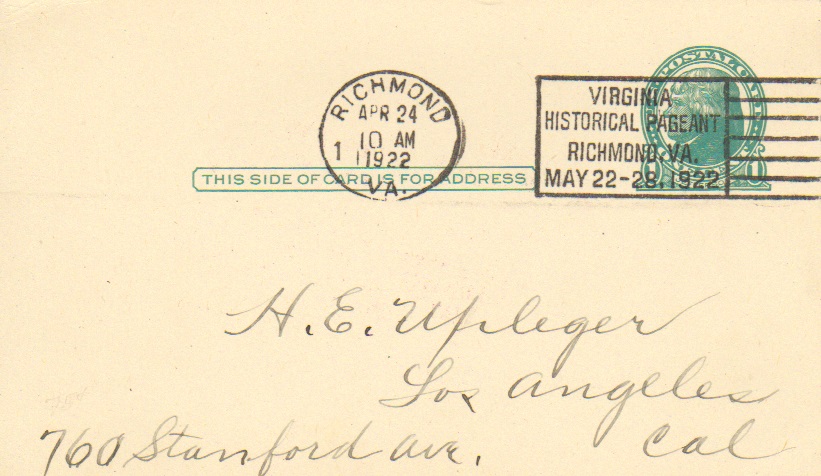 RICHMOND
APR 24
10 AM
1 1922
VA.
POSTAL CARD
VIRGINIA
HISTORICAL PAGEANT
RICHMOND, VA.
MAY 22-28, 1922
THIS SIDE OF CARD IS FOR ADDRESS
H. E. Upleger
Los Angeles
760 Stanford ave. Cal